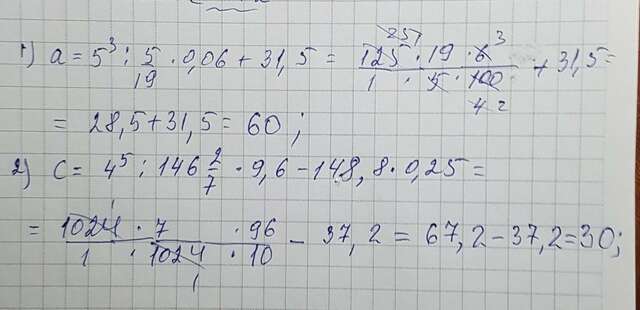 1) a = 5³ : 5/19 · 0,06 + 31,5 = 125 · 19 · 6 / 1 · 5 · 100 + 31,5 =
= 28,5 + 31,5 = 60 ;
2) c = 4⁵ : 146 2/7 · 9,6 - 148,8 · 0,25 =
= 1024 · 7 · 96 / 1 · 1024 · 10 - 37,2 = 67,2 - 37,2 = 30 ;